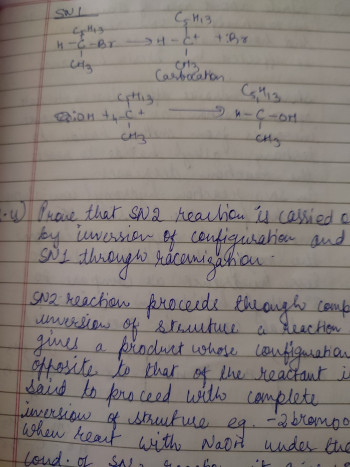 SN1
C6H13 C6H13
H-C-Br → H-C+ + :Br
CH3 CH3
Carbocation
C6H13 C6H13
:OH + H-C+ → H-C-OH
CH3 CH3
Prove that SN2 reaction is carried o
by inversion of configuration and
SN1 through racemization.
SN2 reaction proceeds through comp
inversion of structure a reaction
gives a product whose configuration
opposite to that of the reactant i
said to proceed with complete
inversion of structure eg. -2bromo
when react with NaOH under the
cond. of SN2